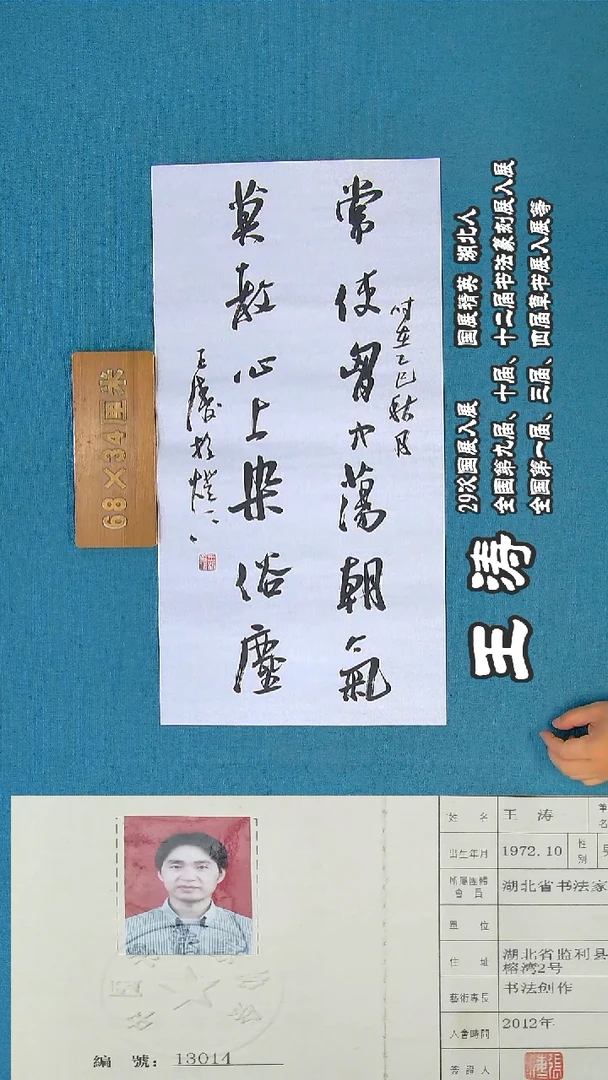 常使胷中蕩朝氣
莫教心上染俗塵
时在乙巳秋月
王涛於
68×34厘米
29次国展入展 国展精英 湖北人
全国第九届、十届、十二届书法篆刻展入展
全国第一届、三届、四届草书展入展等
王涛
姓 名 王 涛
出生年月 1972.10 性別
所屬團體會員 湖北省书法家
單 位
住 址 湖北省监利县
榕湾2号
藝術專長 书法创作
入會時間 2012年
簽證人
編 號：13014